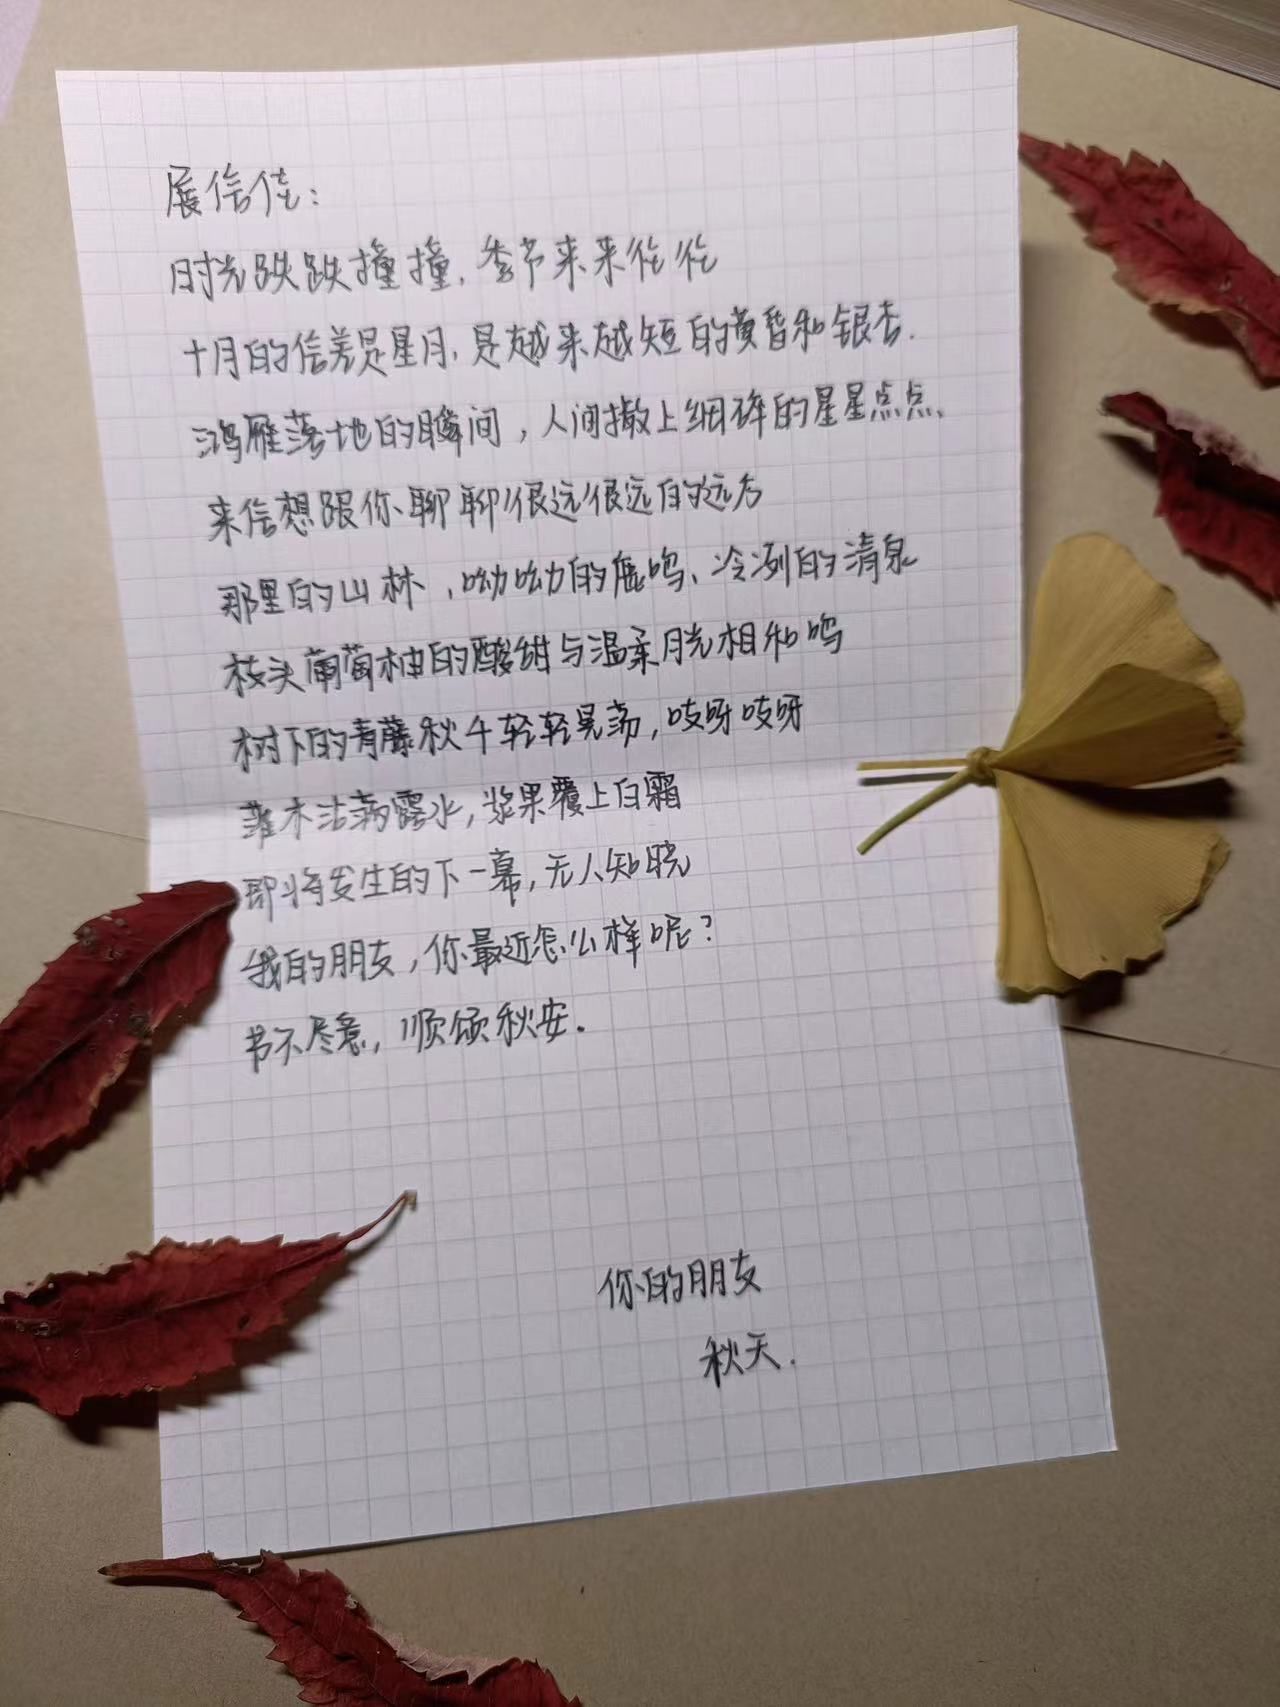 展信佳：
时光跌跌撞撞，季节来来往往
十月的信差是星月，是越来越短的黄昏和银杏.
鸿雁落地的瞬间，人间撒上细碎的星星点点、
来信想跟你聊聊很远很远的远方
那里的山林，呦呦的鹿鸣、冷冽的清泉
枝头葡萄柚的酸甜与温柔月光相和鸣
树下的青藤秋千轻轻晃荡，吱呀吱呀
灌木沾满露水，浆果覆上白霜
即将发生的下一幕，无人知晓
我的朋友，你最近怎么样呢？
书不尽意，顺颂秋安.
你的朋友
秋天.